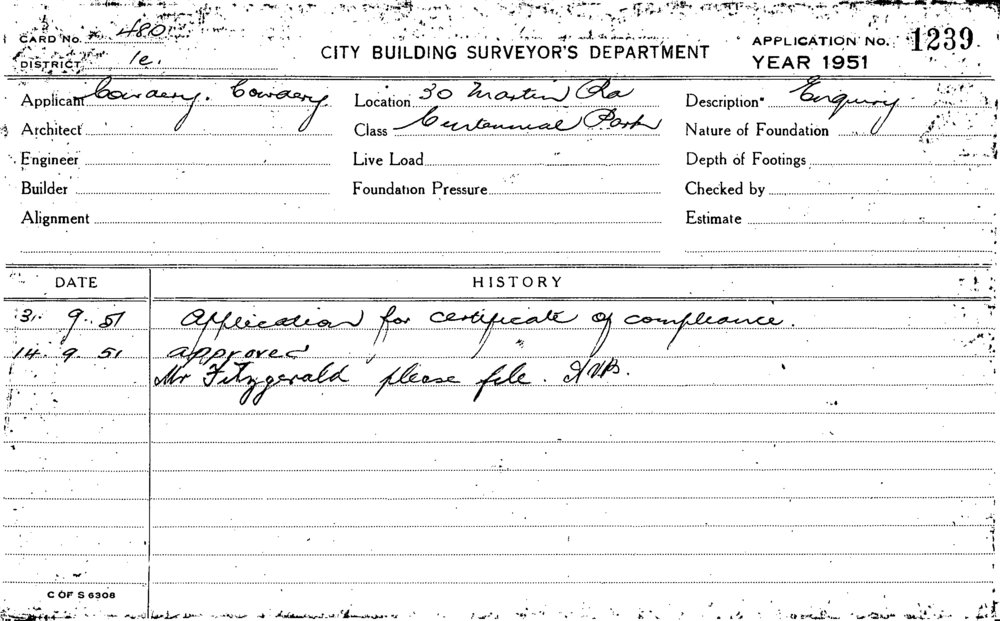 CARD No. 480
DISTRICT 1e.
CITY BUILDING SURVEYOR'S DEPARTMENT
APPLICATION No. 1239
YEAR 1951
Applicant Cowdery. Cowdery Location 30 Martin Rd Description Enquiry
Architect Class Centennial Park Nature of Foundation
Engineer Live Load Depth of Footings
Builder Foundation Pressure Checked by
Alignment Estimate
DATE HISTORY
9. 51 Application for certificate of compliance.
14. 9. 51 approved
Mr Fitzgerald please file.
C OF S 6308